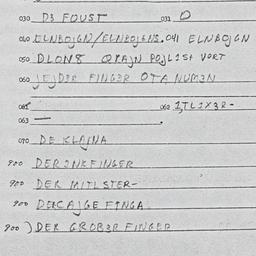 030 D3 FOUST 031 O
040 ELNBOJGN/ELNBOJGNS. 041 ELNBOJGN
050 DLONS QRAJN POJLIST VORT
060 JEJDER FINGER OTA NUMEN
061 062 1,TLIX3R-
063 —
070 DE KLAJNA
900 DER INK FINGER
900 DER MITLSTER-
900 DERCAJGE FINGA
900 ) DER GROB3R FINGER